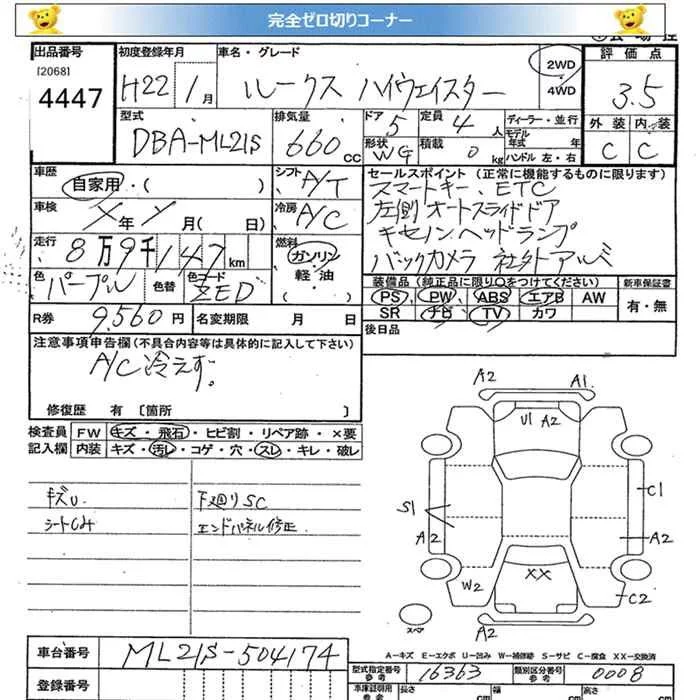 完全ゼロ切りコーナー
出品番号 初度登録年月 車名・グレード 2WD 4WD 評価点
[2068]
4447 H22 1月 ルークス ハイウェイスター 3.5
型式 排気量 ドア 定員 ディーラー・並行 外装 内装
DBA-ML21S 660cc 5 4人 モデル年式 年 C C
形状 WG 積載 0kg ハンドル 左・右
車歴 自家用・( ) シフト A/T セールスポイント (正常に機能するものに限ります)
スマートキー、ETC
車検 年 月( 日) 冷房 A/C 左側オートスライドドア
キセノンヘッドランプ
走行 8万9千147km 燃料 ガソリン・軽油・ バックカメラ 社外アルミ
色 パープル 色替 色コード ZED 装備品 (純正品に限り○をつけてください) 新車保証書
PS、PW、ABS、エアB AW 有・無
R券 9,560円 名変期限 月 日 SR ナビ TV カワ
後日品
注意事項申告欄 (不具合内容等は具体的に記入して下さい)
A/C冷えず。
修復歴 有 [箇所 ]
検査員 FW キズ・飛石・ヒビ割・リペア跡・×要
記入欄 内装 キズ・汚レ・コゲ・穴・スレ・キレ・破レ
キズU 下廻りSC
エンドパネル修正
A2 A1
U1 A2
S1 C1
A2 A2
W2 XX C2
スペア A2
A-キズ E-エクボ U-凹み W-補修跡 S-サビ C-腐食 XX-交換済
車台番号 ML21S-504174
型式指定番号 参考 16363 類別区分番号 参考 0008
登録番号 車庫証明用 参考 長さ cm 幅 cm 高さ cm